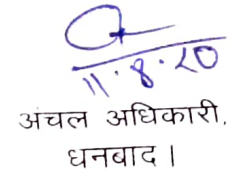 11.8.20
अंचल अधिकारी,
धनबाद।